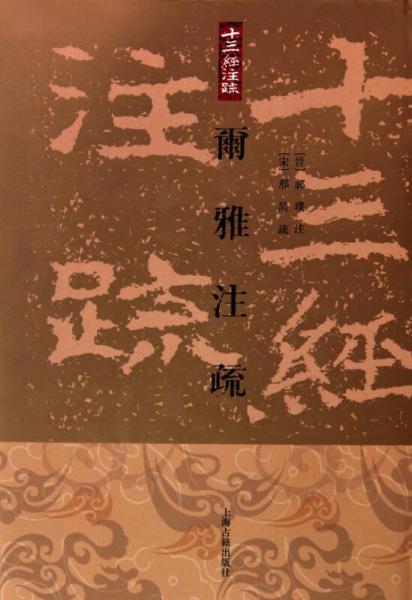 十三經
注疏
十三經注疏
爾雅注疏
[晉]郭璞注
[宋]邢昺疏
上海古籍出版社